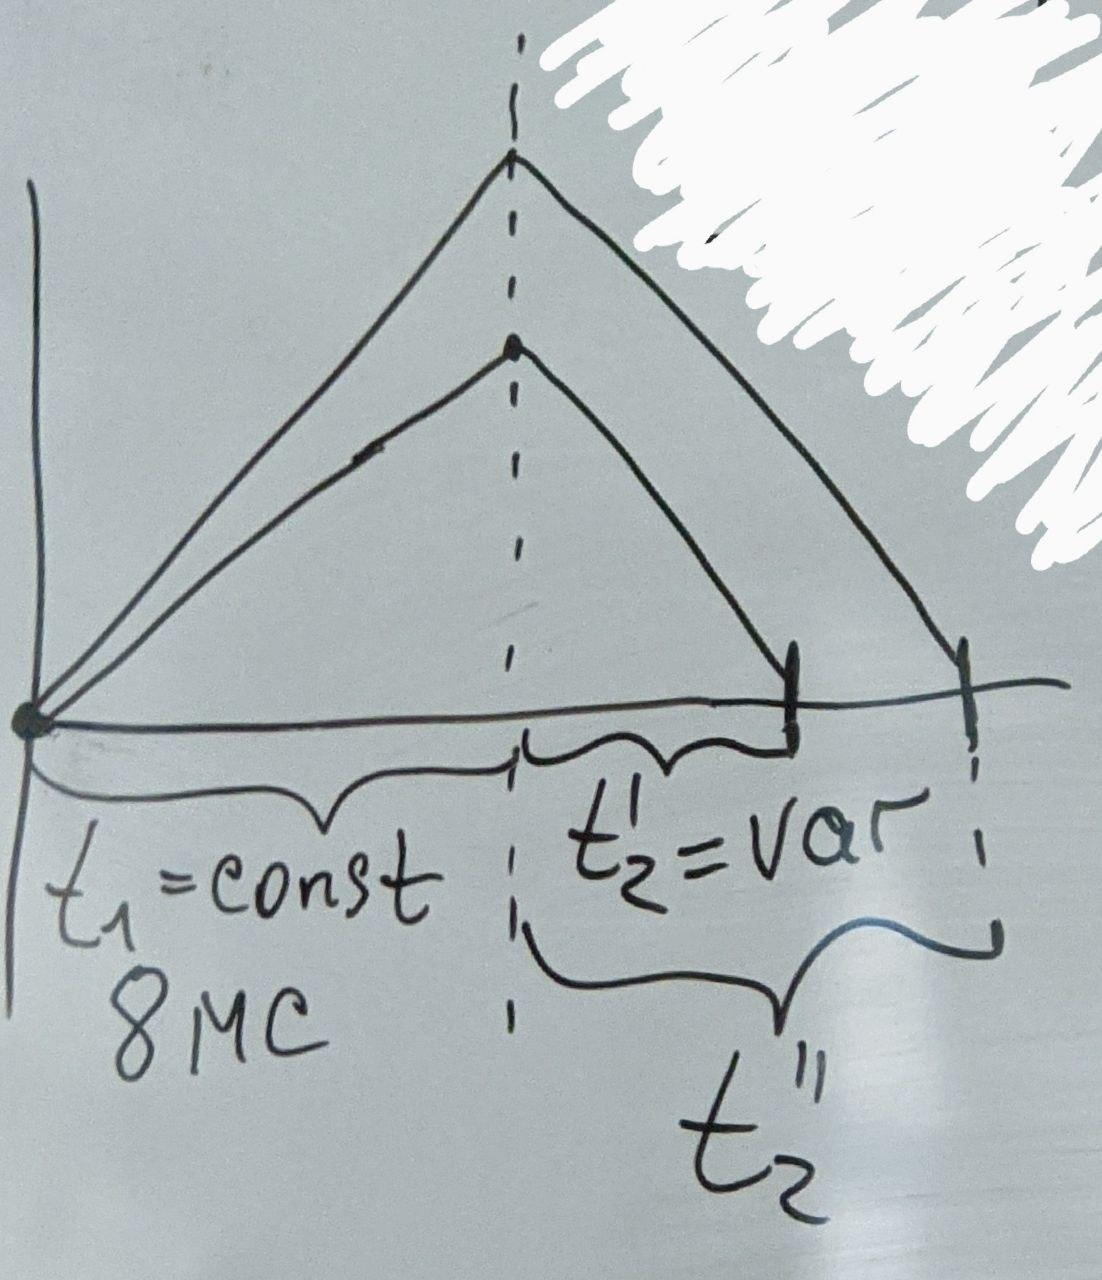 t₁ = const
8 мс
t₂' = var
t₂''